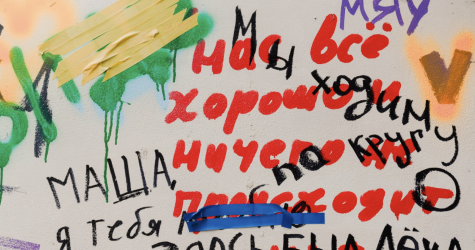 МЯУ
У нас всё
хорошо
ничего не
происходит
Мы
ходим
по кругу
МАША,
я тебя люблю
ЗДЕСЬ БЫЛА ЛЁНА